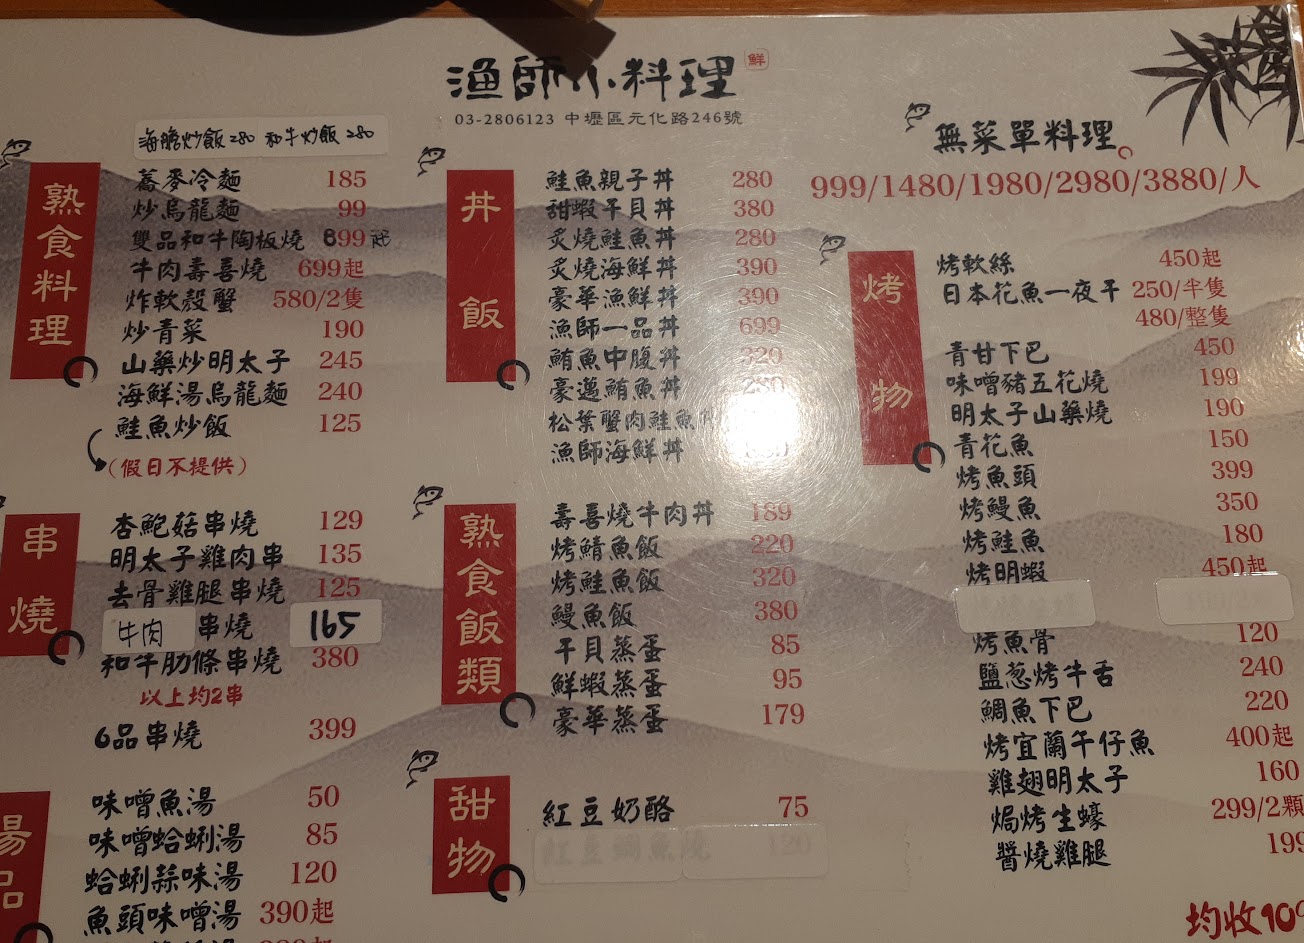 漁師小料理 鮮
03-2806123 中壢區元化路246號
海膽炒飯280 和牛炒飯280
熟食料理
蕎麥冷麵 185
炒烏龍麵 99
雙品和牛陶板燒 899起
牛肉壽喜燒 699起
炸軟殼蟹 580/2隻
炒青菜 190
山藥炒明太子 245
海鮮湯烏龍麵 240
鮭魚炒飯 125
(假日不提供)
串燒
杏鮑菇串燒 129
明太子雞肉串 135
去骨雞腿串燒 125
牛肉串燒 165
和牛肋條串燒 380
以上均2串
6品串燒 399
湯品
味噌魚湯 50
味噌蛤蜊湯 85
蛤蜊蒜味湯 120
魚頭味噌湯 390起
丼飯
鮭魚親子丼 280
甜蝦干貝丼 380
炙燒鮭魚丼 280
炙燒海鮮丼 390
豪華漁鮮丼 390
漁師一品丼 699
鮪魚中腹丼 320
豪邁鮪魚丼 280
松葉蟹肉鮭魚丼
漁師海鮮丼
熟食飯類
壽喜燒牛肉丼 189
烤鯖魚飯 220
烤鮭魚飯 320
鰻魚飯 380
干貝蒸蛋 85
鮮蝦蒸蛋 95
豪華蒸蛋 179
甜物
紅豆奶酪 75
紅豆鯛魚燒 120
無菜單料理
999/1480/1980/2980/3880/人
烤物
烤軟絲 450起
日本花魚一夜干 250/半隻
480/整隻
青甘下巴 450
味噌豬五花燒 199
明太子山藥燒 190
青花魚 150
烤魚頭 399
烤鰻魚 350
烤鮭魚 180
烤明蝦 450起
烤魚骨 120
鹽蔥烤牛舌 240
鯛魚下巴 220
烤宜蘭午仔魚 400起
雞翅明太子 160
焗烤生蠔 299/2顆
醬燒雞腿 199
均收10